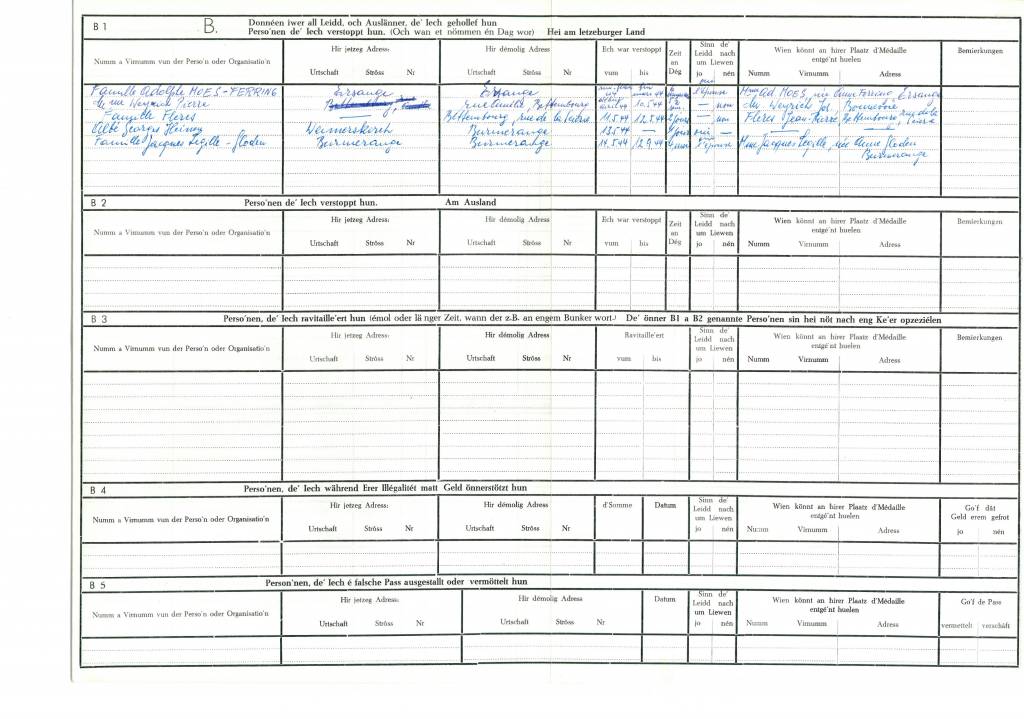 B 1 B. Donnéen iwer all Leidd, och Auslänner, de' Iech gehollef hun
Perso'nen de' Iech verstoppt hun. (Och wan et nömmen én Dag wor) Hei am letzeburger Land
Numm a Virnumm vun der Perso'n oder Organisatio'n
Hir jetzeg Adress:
Urtschaft Ströss Nr
Hir démolig Adress:
Urtschaft Ströss Nr
Ech war verstoppt
vum bis
Zeit an Dég
Sinn de' Leidd nach um Liewen
jo nén
Wien könnt an hirer Plaatz d'Médaille entgé'nt huelen
Numm Virnumm Adress
Bemierkungen
Famille Adolphe MOES-FERRING Ersange Ersange l'épouse Mme Ad. MOES, née Anne Ferring Ersange
Pierre Bettembourg 10.5.44 — non Weyrich Jos.
Famille Fleres — Bettembourg, rue de la 11.5.44 12.5.44 2 jours — non Fleres Jean-Pierre Bettembourg, rue de la
Abbé Georges Weimerskirch Burmerange 13.5.44 — oui — —
Famille Jacques Legille-Gloden Burmerange Burmerange 14.5.44 12.9.44 l'épouse Mme Jacques Legille, née Anne Gloden
Burmerange
B 2 Perso'nen de' Iech verstoppt hun. Am Ausland
Numm a Virnumm vun der Perso'n oder Organisatio'n
Hir jetzeg Adress:
Urtschaft Ströss Nr
Hir démolig Adress:
Urtschaft Ströss Nr
Ech war verstoppt
vum bis
Zeit an Dég
Sinn de' Leidd nach um Liewen
jo nén
Wien könnt an hirer Plaatz d'Médaille entgé'nt huelen
Numm Virnumm Adress
Bemierkungen
B 3 Perso'nen, de' Iech ravitaille'ert hun (émol oder lä nger Zeit, wann der z.B. an engem Bunker wort.) De' önner B1 a B2 genannte Perso'nen sin hei nöt nach eng Ke'er opzeziélen
Numm a Virnumm vun der Perso'n oder Organisatio'n
Hir jetzeg Adress:
Urtschaft Ströss Nr
Hir démolig Adress:
Urtschaft Ströss Nr
Ravitaille'ert
vum bis
Sinn de' Leidd nach um Liewen
jo nén
Wien könnt an hirer Plaatz d'Médaille entgé'nt huelen
Numm Virnumm Adress
Bemierkungen
B 4 Perso'nen, de' Iech während Erer Illégalitét matt Geld önnerstötzt hun
Numm a Virnumm vun der Perso'n oder Organisatio'n
Hir jetzeg Adress:
Urtschaft Ströss Nr
Hir démolig Adress:
Urtschaft Ströss Nr
d'Somme
Datum
Sinn de' Leidd nach um Liewen
jo nén
Wien könnt an hirer Plaatz d'Médaille entgé'nt huelen
Numm Virnumm Adress
Go'f dât Geld erem gefrot
jo nén
B 5 Person'nen, de' Iech é falsche Pass ausgestallt oder vermöttelt hun
Numm a Virnumm vun der Perso'n oder Organisatio'n
Hir jetzeg Adress:
Urtschaft Ströss Nr
Hir démolig Adress:
Urtschaft Ströss Nr
Datum
Sinn de' Leidd nach um Liewen
jo nén
Wien könnt an hirer Plaatz d'Médaille entgé'nt huelen
Numm Virnumm Adress
Go'f de Pass
vermettelt verschâft